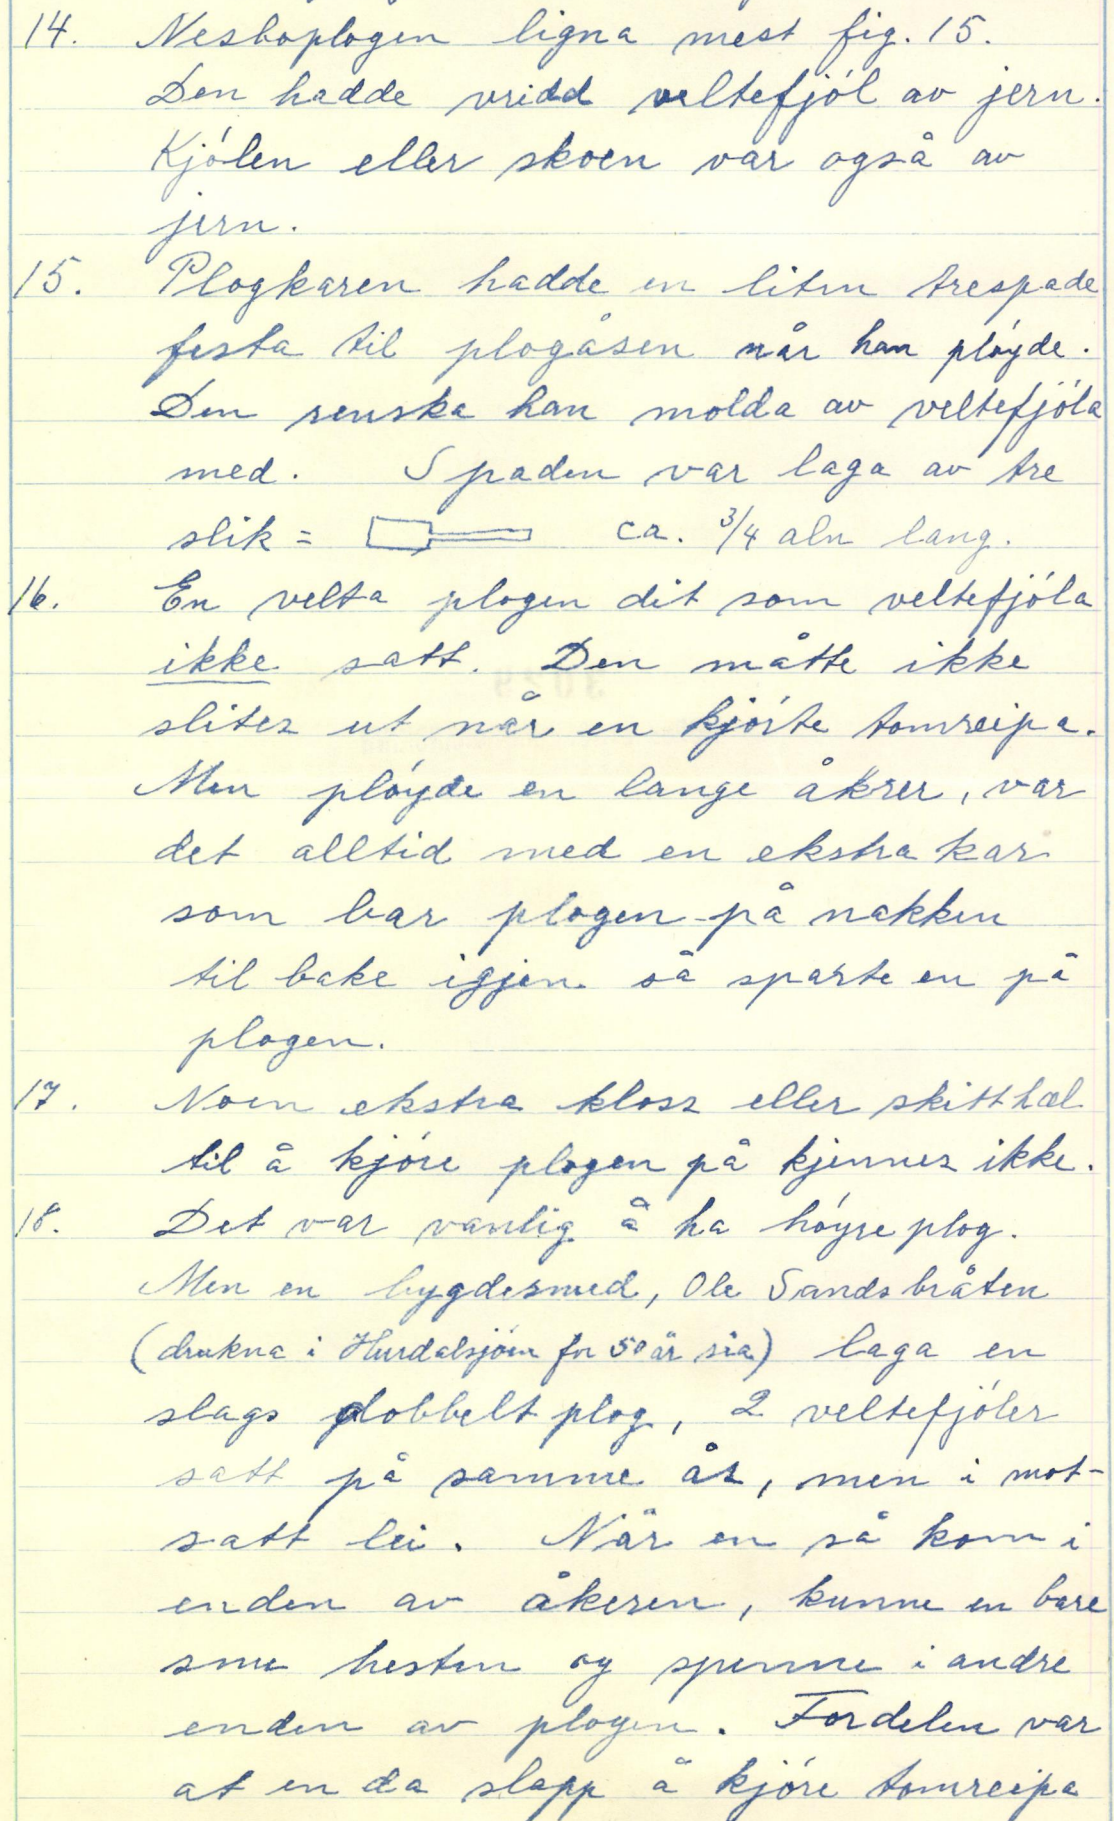 14. Nesboplogen ligna mest fig. 15.
Den hadde vridd veltefjól av jern.
Kjólen eller skoen var også av
jern.
15. Plogkaren hadde en liten trespade
festa til plogåsen når han plóyde.
Den renska han molda av veltefjóla
med. Spaden var laga av tre
slik = ca. 3/4 aln lang.
16. En velta plogen dit som veltefjóla
ikke satt. Den måtte ikke
slites ut når en kjórte tomreipa.
Men plóyde en lange åkrer, var
det alltid med en ekstra kar
som bar plogen på nakken
til bake igjen så sparte en på
plogen.
17. Noen ekstra kloss eller skitthæl
til å kjóre plogen på kjennes ikke.
18. Det var vanlig å ha hóyre plog.
Men en bygdesmed, Ole Sandsbråten
(drukna i Hurdalsjóen for 50 år sia) laga en
slags dobbelt plog, 2 veltefjóler
satt på samme ås, men i mot-
satt lei. Når en så kom i
enden av åkeren, kunne en bare
snu hesten og spenne i andre
enden av plogen. Fordelen var
at en da slapp å kjóre tomreipa